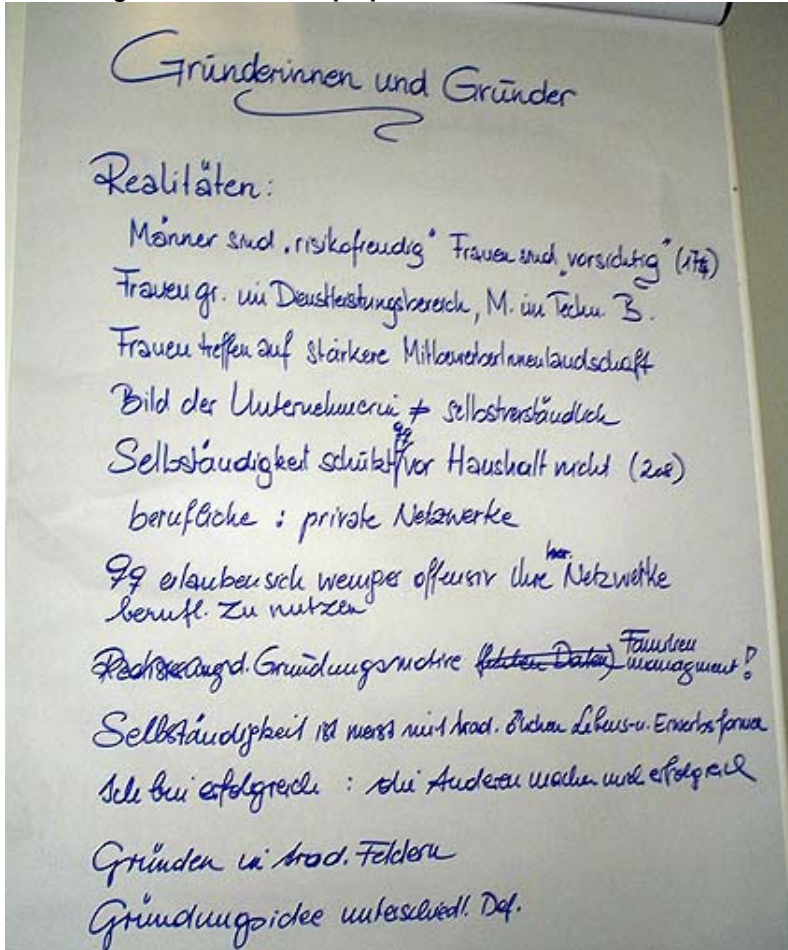 Gründerinnen und Gründer
Realitäten:
Männer sind „risikofreudig" Frauen sind „vorsichtig"
Frauen gr. im Dienstleistungsbereich, M. im Techn. B.
Frauen treffen auf stärkere MitbewerberInnenlandschaft
Bild der Unternehmerin ≠ selbstverständlich
Selbständigkeit schützt ♀♀ vor Haushalt nicht
berufliche : private Netzwerke
♀♀ erlauben sich weniger offensiv ihre Netzwerke
berufl. zu nutzen
Gründungsmotive Familien
managment!
Selbständigkeit ist meist mit trad. Lebens- u. Erwerbsformen
Ich bin erfolgreich : die Anderen machen mich erfolgreich
Gründen in trad. Feldern
Gründungsidee unterschiedl. Def.